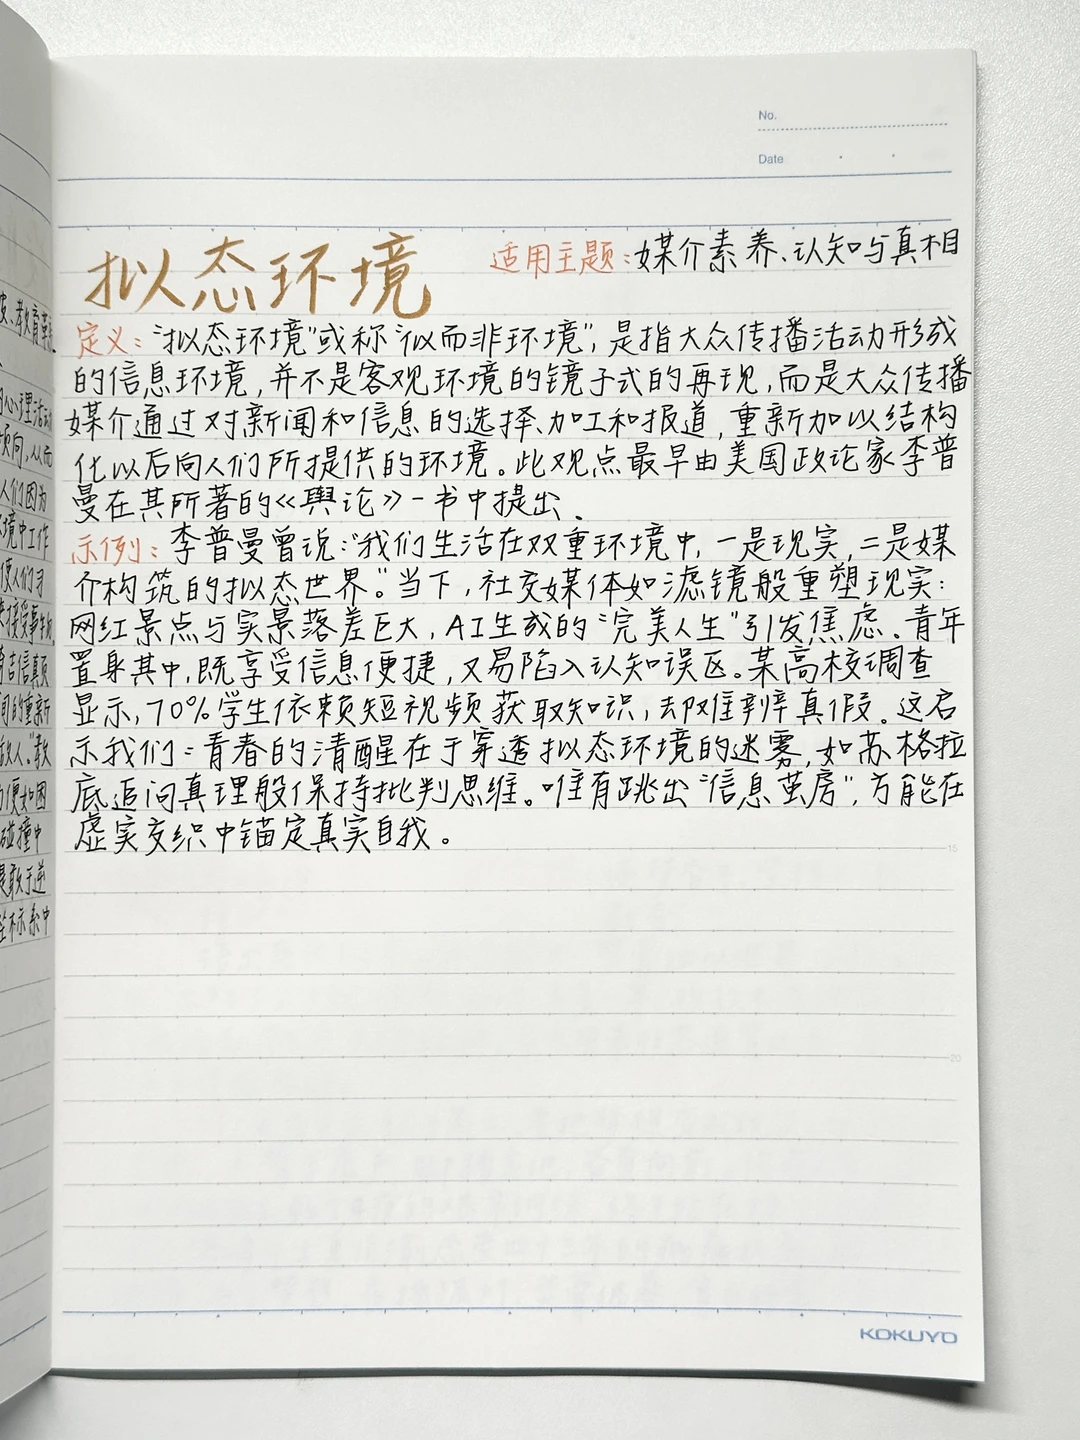 No.
Date
拟态环境
适用主题:媒介素养、认知与真相
定义:“拟态环境”或称“似而非环境”,是指大众传播活动形成
的信息环境,并不是客观环境的镜子式的再现,而是大众传播
媒介通过对新闻和信息的选择、加工和报道,重新加以结构
化以后向人们所提供的环境。此观点最早由美国政论家李普
曼在其所著的《舆论》一书中提出.
示例:李普曼曾说:“我们生活在双重环境中,一是现实,二是媒
介构筑的拟态世界。”当下,社交媒体如滤镜般重塑现实:
网红景点与实景落差巨大,AI生成的“完美人生”引发焦虑.青年
置身其中,既享受信息便捷,又易陷入认知误区。某高校调查
显示,70%学生依赖短视频获取知识,却难辨真假。这启
示我们:青春的清醒在于穿透拟态环境的迷雾,如苏格拉
底追问真理般保持批判思维。唯有跳出“信息茧房”,方能在
虚实交织中锚定真实自我。
15
20
KOKUYO
教育
心理活动
倾向,从而
人们因为
环境中工作
使人们习
接受事
言信真
的重新
敌人.”教
便如困
碰撞中
敢于逆
坐标系中